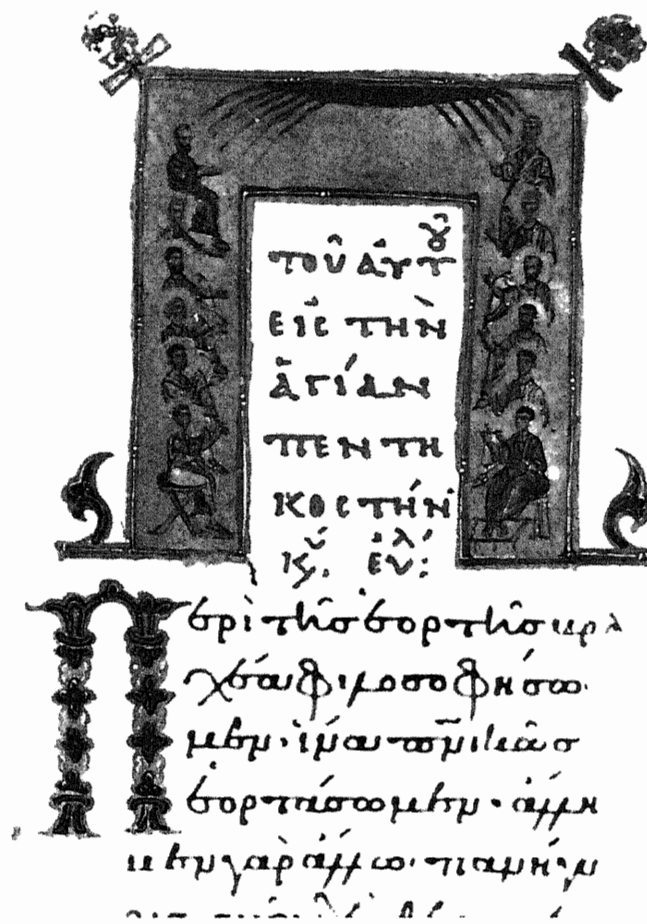 ΤΟῦ ἈΥΤΟῦ
ΕΙϹ ΤΗΝ
ἉΓΊΑΝ
ΠΕΝΤΗ
ΚΟϹΤΉΝ
Κύ. ἐυλ:
Περὶ τῆς ἑορτῆς βρα
χέα φιλοσοφήσω
μεν· ἵνα πν̅ικῶς
ἑορτάσωμεν· ἄλλη
μὲν γὰρ ἄλλω· πανήγυ